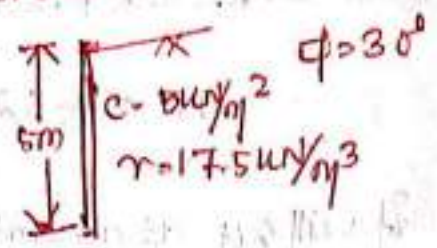 ϕ = 30°
5m
c - 5kN/m²
γ = 17.5 kN/m³